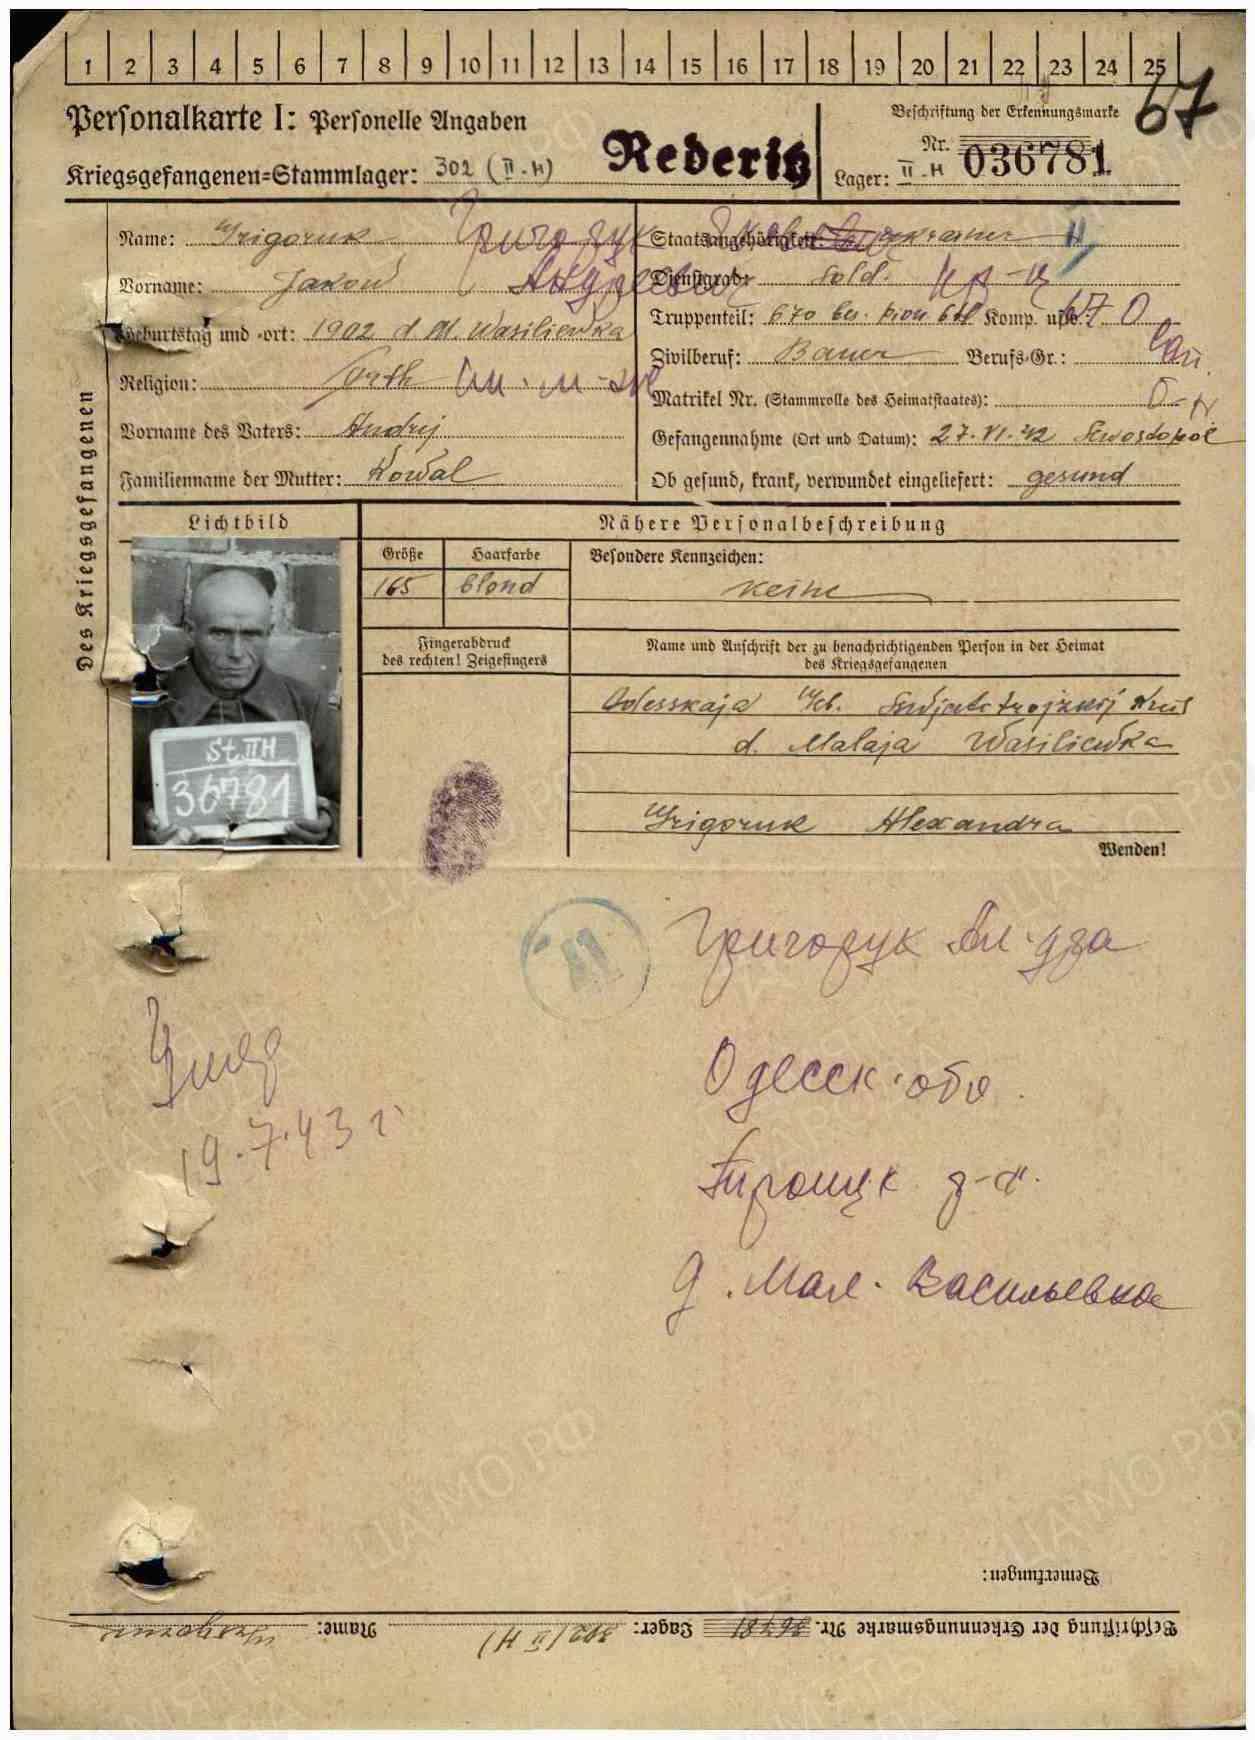 1 2 3 4 5 6 7 8 9 10 11 12 13 14 15 16 17 18 19 20 21 22 23 24 25
67
Personalkarte I: Personelle Angaben
Beschriftung der Erkennungsmarke
Nr. 036781
Kriegsgefangenen=Stammlager: 302 (II-H) Rederitz
Lager: II-H
Des Kriegsgefangenen
Name: Grigoruk Григорук
Vorname: Jakow
Geburtstag und -ort: 1902 d. M. Wasiliewka
Religion: Orth
Vorname des Vaters: Andrej
Familienname der Mutter: Kowal
Staatsangehörigkeit: Ukrainer
Dienstgrad: Sold.
Truppenteil: 670 Komp. usw.: 670
Zivilberuf: Bauer Berufs-Gr.:
Matrikel Nr. (Stammrolle des Heimatstaates):
Gefangennahme (Ort und Datum): 27.VI.42 Sewostopol
Ob gesund, krank, verwundet eingeliefert: gesund
Lichtbild
Nähere Personalbeschreibung
Größe Haarfarbe Besondere Kennzeichen:
165 blond keine
Fingerabdruck
des rechten! Zeigefingers
Name und Anschrift der zu benachrichtigenden Person in der Heimat
des Kriegsgefangenen
St. II H
36781
Odesskaja
d. Malaja Wasiliewka
Grigoruk Alexandra
Wenden!
Григорук Ал-дра
Одесск. обл.
19.7.43 г
д. Мал. Васильевка
Bemerkungen:
Beschriftung der Erkennungsmarke Nr. 36781 Lager: 302 (II H) Name: Grigoruk